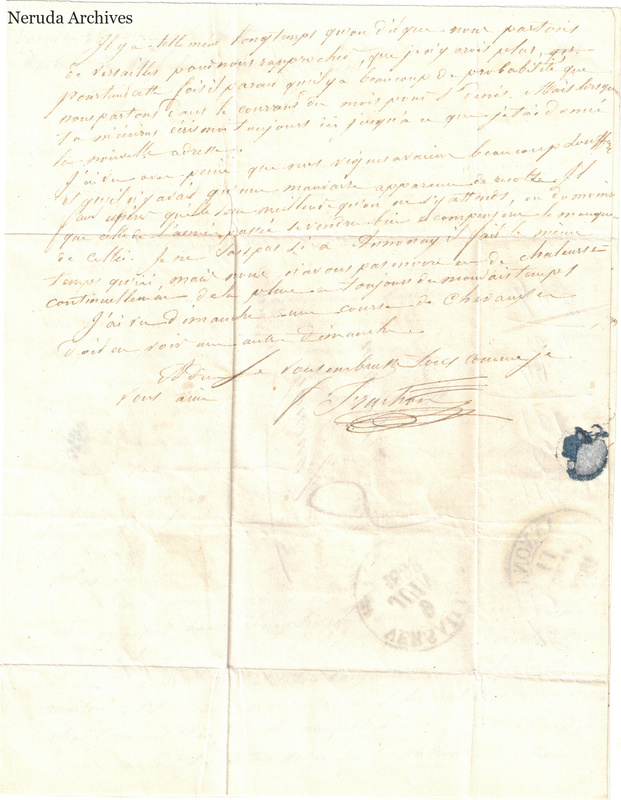 Neruda Archives
Il y a tellement longtemps qu'on dit que nous partons
de Versailles pour nous rapprocher, que je n'y crois plus,
pourtant cette fois il parait qu'il y a beaucoup de probabilité que
nous partons dans le courant du mois pour St Denis. Mais lorsque
tu m'écriras écris moi toujours ici jusqu'à ce que je t'ai donné
la nouvelle adresse.
J'ai vu avec peine que nos vignes avaient beaucoup souffert
et qu'il n'y avait qu'une mauvaise apparence de récolte. Il
faut espérer qu'elle sera meilleure qu'on ne s'y attend, ou du moins
que celle de l'année passée se vendra bien et compensera le manque
de celle ci. Je ne sais pas si à Annonay il fait le même
temps qu'ici, mais nous n'avons pas encore eu de chaleurs
continuellement de la pluie et toujours du mauvais temps
J'ai vu dimanche une course de chevaux et
doit en voir une autre Dimanche.
Adieu je vous embrasse tous comme je
vous aime
VERSAILLES
6
JUIL
11